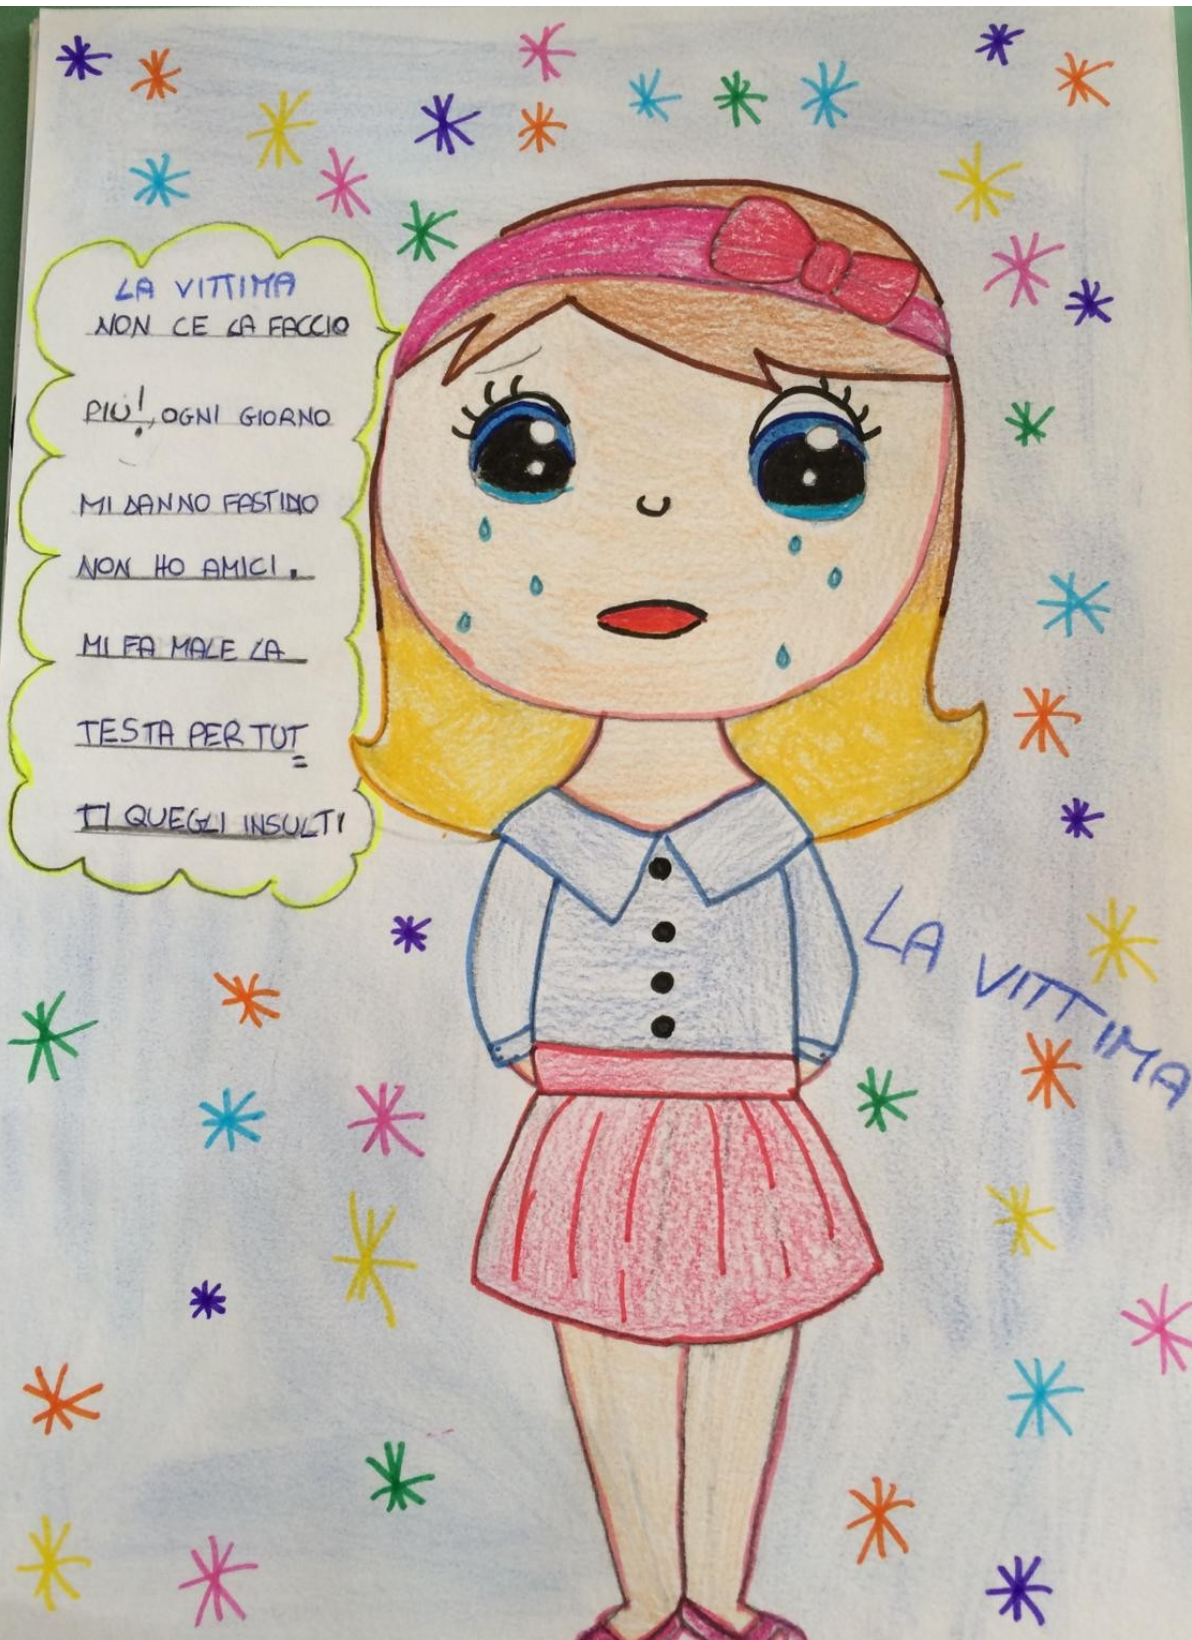 LA VITTIMA
NON CE LA FACCIO
PIÙ!, OGNI GIORNO
MI DANNO FASTIDIO
NON HO AMICI.
MI FA MALE LA
TESTA PER TUT
TI QUEGLI INSULTI
LA VITTIMA